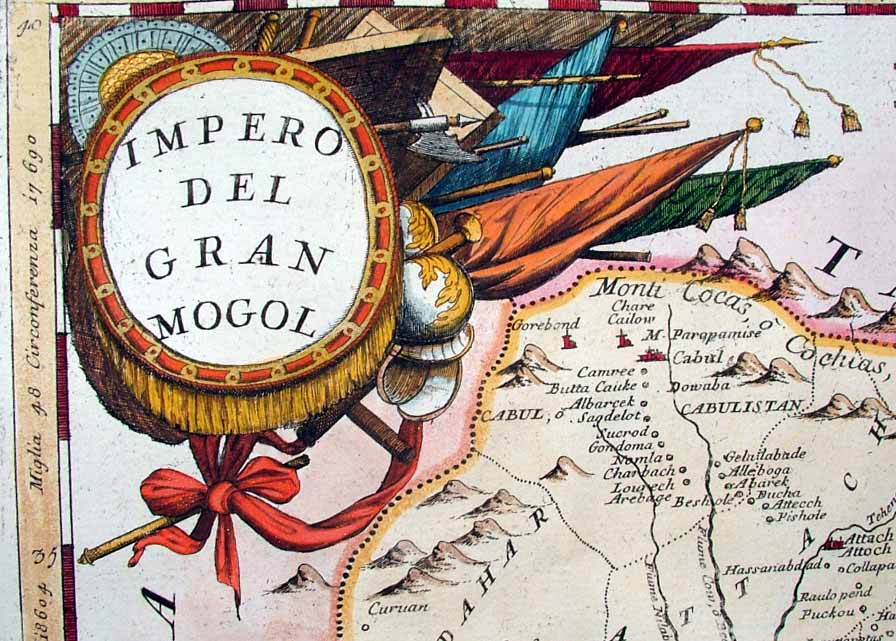 IMPERO
DEL
GRAN
MOGOL
40
Miglia 48 Circonferenza 17690
35
18604
T
Monti Cocas
Chare
Cailow
Gorebond
M. Paropamise
Cabul
Cochias,
Camree
Butta Cauke
Dowaba
Albarcek
CABUL,
Sagdelot
CABULISTAN
Sucrod
Gondoma
Nomla
Charbach
Lourech
Arebage
Beshole
Gelulabade
Alleboga
Abarek
Bucha
Attecch
Pishole
C H
DAHAR
A T T A
Attach
Attoch
Hassanabdad
Collapa
Raulo pend
Puckou
Curuan
A